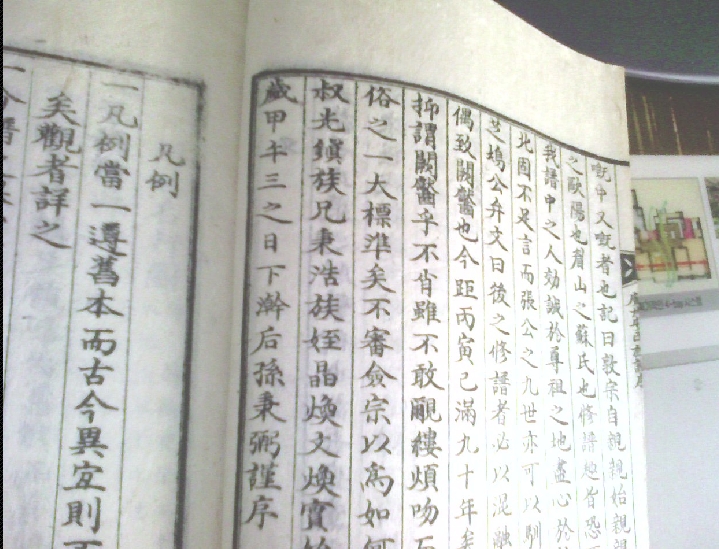 慨中又慨者也記曰敦宗自親親始親親
之歐陽也眉山之蘇氏也修譜
我譜中之人効誠於尊祖之地盡心於
北固不足言而張公之九世亦可以馴
鳩公弁文曰後之修譜者必以混融
偶致闕蠁也今距丙寅已滿九十年矣
抑謂闕蠁乎不肖雖不敢覼縷煩吻
俗之一大標準矣不審僉宗以爲如何
叔光鎭族兄秉浩族姪晶煥文煥實
歲甲午三之日下澣后孫秉弼謹序
凡例
一凡例當一遵舊本而古今異宜則
矣觀者詳之